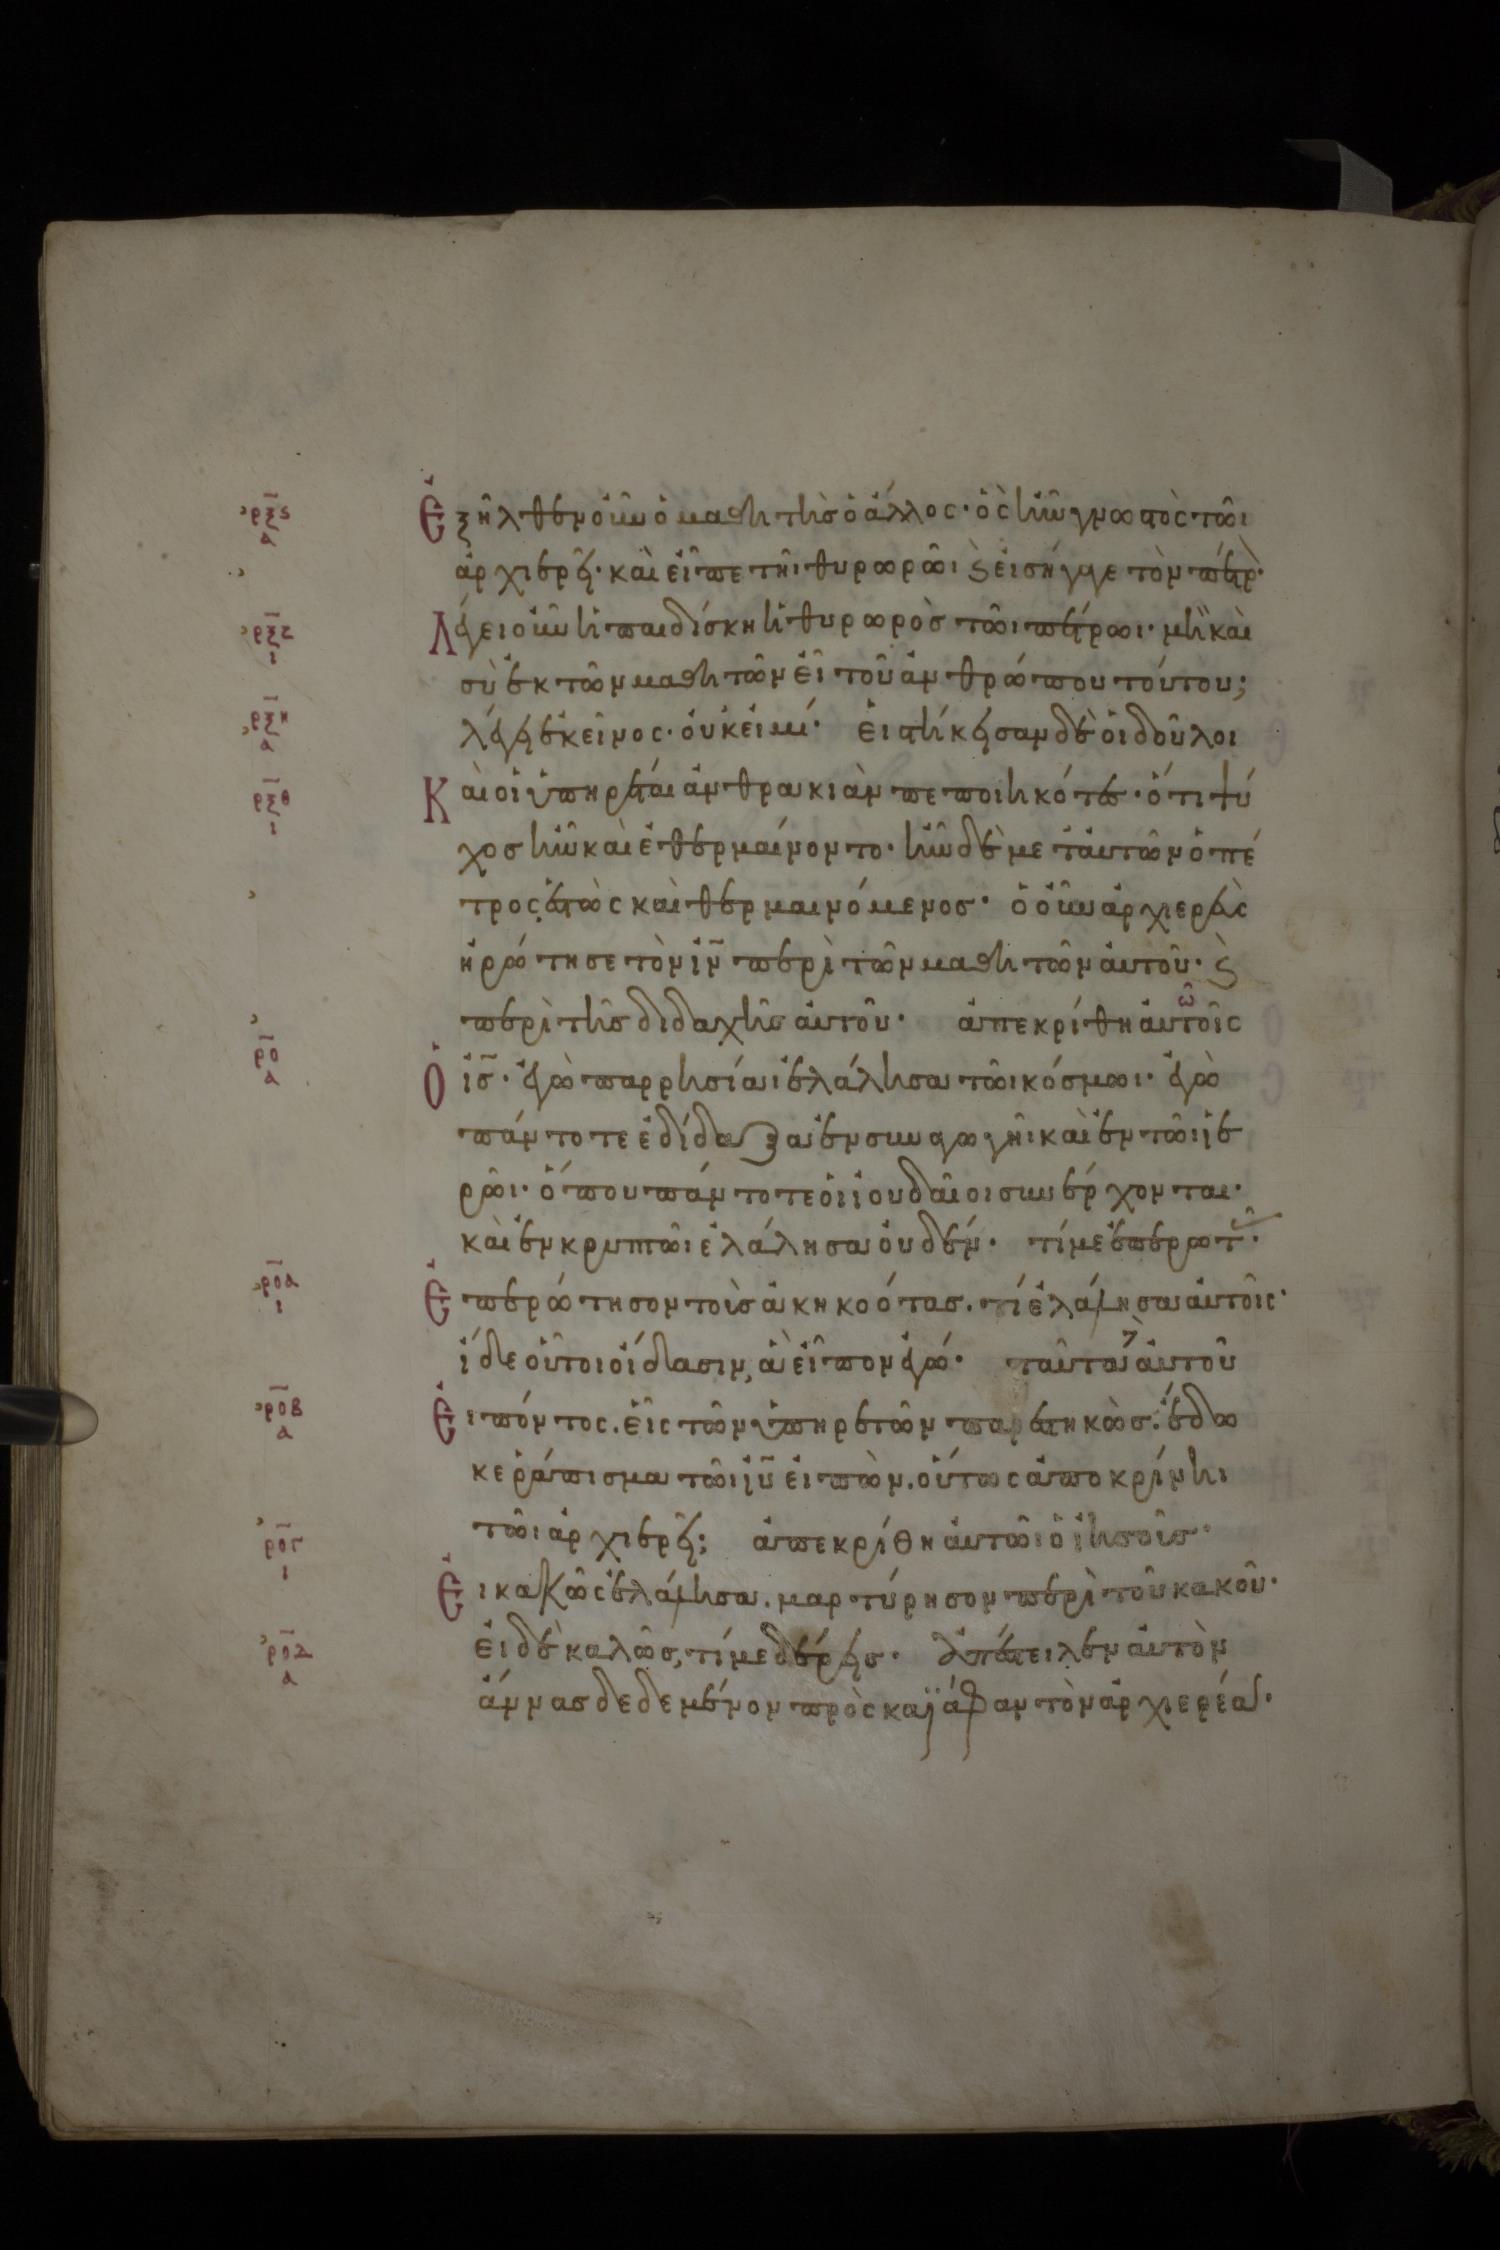 ρξϛ α Ἐξῆλθεν οὖν ὁ μαθητὴς ὁ ἄλλος· ὃς ἦν γνωστὸς τῶι
ἀρχιερεῖ· καὶ εἶπε τῆι θυρωρῶι ϗ εἰσήγαγε τὸν πέτρ·
ρξζ ι Λέγει οὖν ἡ παιδίσκη ἡ θυρωρὸς τῶι πέτρωι· μὴ καὶ
σὺ ἐκ τῶν μαθητῶν εἶ τοῦ ἀνθρώπου τούτου;
ρξη α λέγει ἐκεῖνος· οὐκ εἰμί· εἱστήκεισαν δὲ οἱ δοῦλοι
ρξθ ι Καὶ οἱ ὑπηρέται ἀνθρακιὰν πεποιηκότες· ὅτι ψύ
χος ἦν καὶ ἐθερμαίνοντο· ἦν δὲ μετ' αὐτῶν ὁ πέ
τρος ἑστὼς καὶ θερμαινόμενος· ὁ οὖν ἀρχιερεὺς
ἠρώτησε τὸν ἰν περὶ τῶν μαθητῶν αὐτοῦ· ϗ
περὶ τῆς διδαχῆς αὐτοῦ· ἀπεκρίθη αὐτοῖς
ρο α Ὁ ἰς· ἐγὼ παρρησίαι ἐλάλησα τῶι κόσμωι· ἐγὼ
πάντοτε ἐδίδαξα ἐν συναγωγῆι καὶ ἐν τῶι ἱε
ρῶι· ὅπου πάντοτε οἱ ἰουδαῖοι συνέρχονται·
καὶ ἐν κρυπτῶι ἐλάλησα οὐδέν· τί με ἐπερωτ·
ροα ι Ἐπερώτησον τοὺς ἀκηκοότας. τί ἐλάλησα αὐτοῖς·
ἴδε οὗτοι οἴδασιν, ἃ εἶπον ἐγώ· ταῦτα αὐτοῦ
ροβ α Εἰπόντος. εἷς τῶν ὑπηρετῶν παρεστηκὼς. ἔδω
κε ῥάπισμα τῶι ἰυ εἰπών. οὕτως ἀποκρίνηι
τῶι ἀρχιερεῖ; ἀπεκρίθη αὐτῶι ὁ ἰησοῦς·
ρογ ι Εἰ κακῶς ἐλάλησα. μαρτύρησον περὶ τοῦ κακοῦ·
εἰ δὲ καλῶς, τί με δέρεις· ἀπέστειλεν αὐτὸν
ροδ α ἄννας δεδεμένον πρὸς καϊάφαν τὸν ἀρχιερέα·